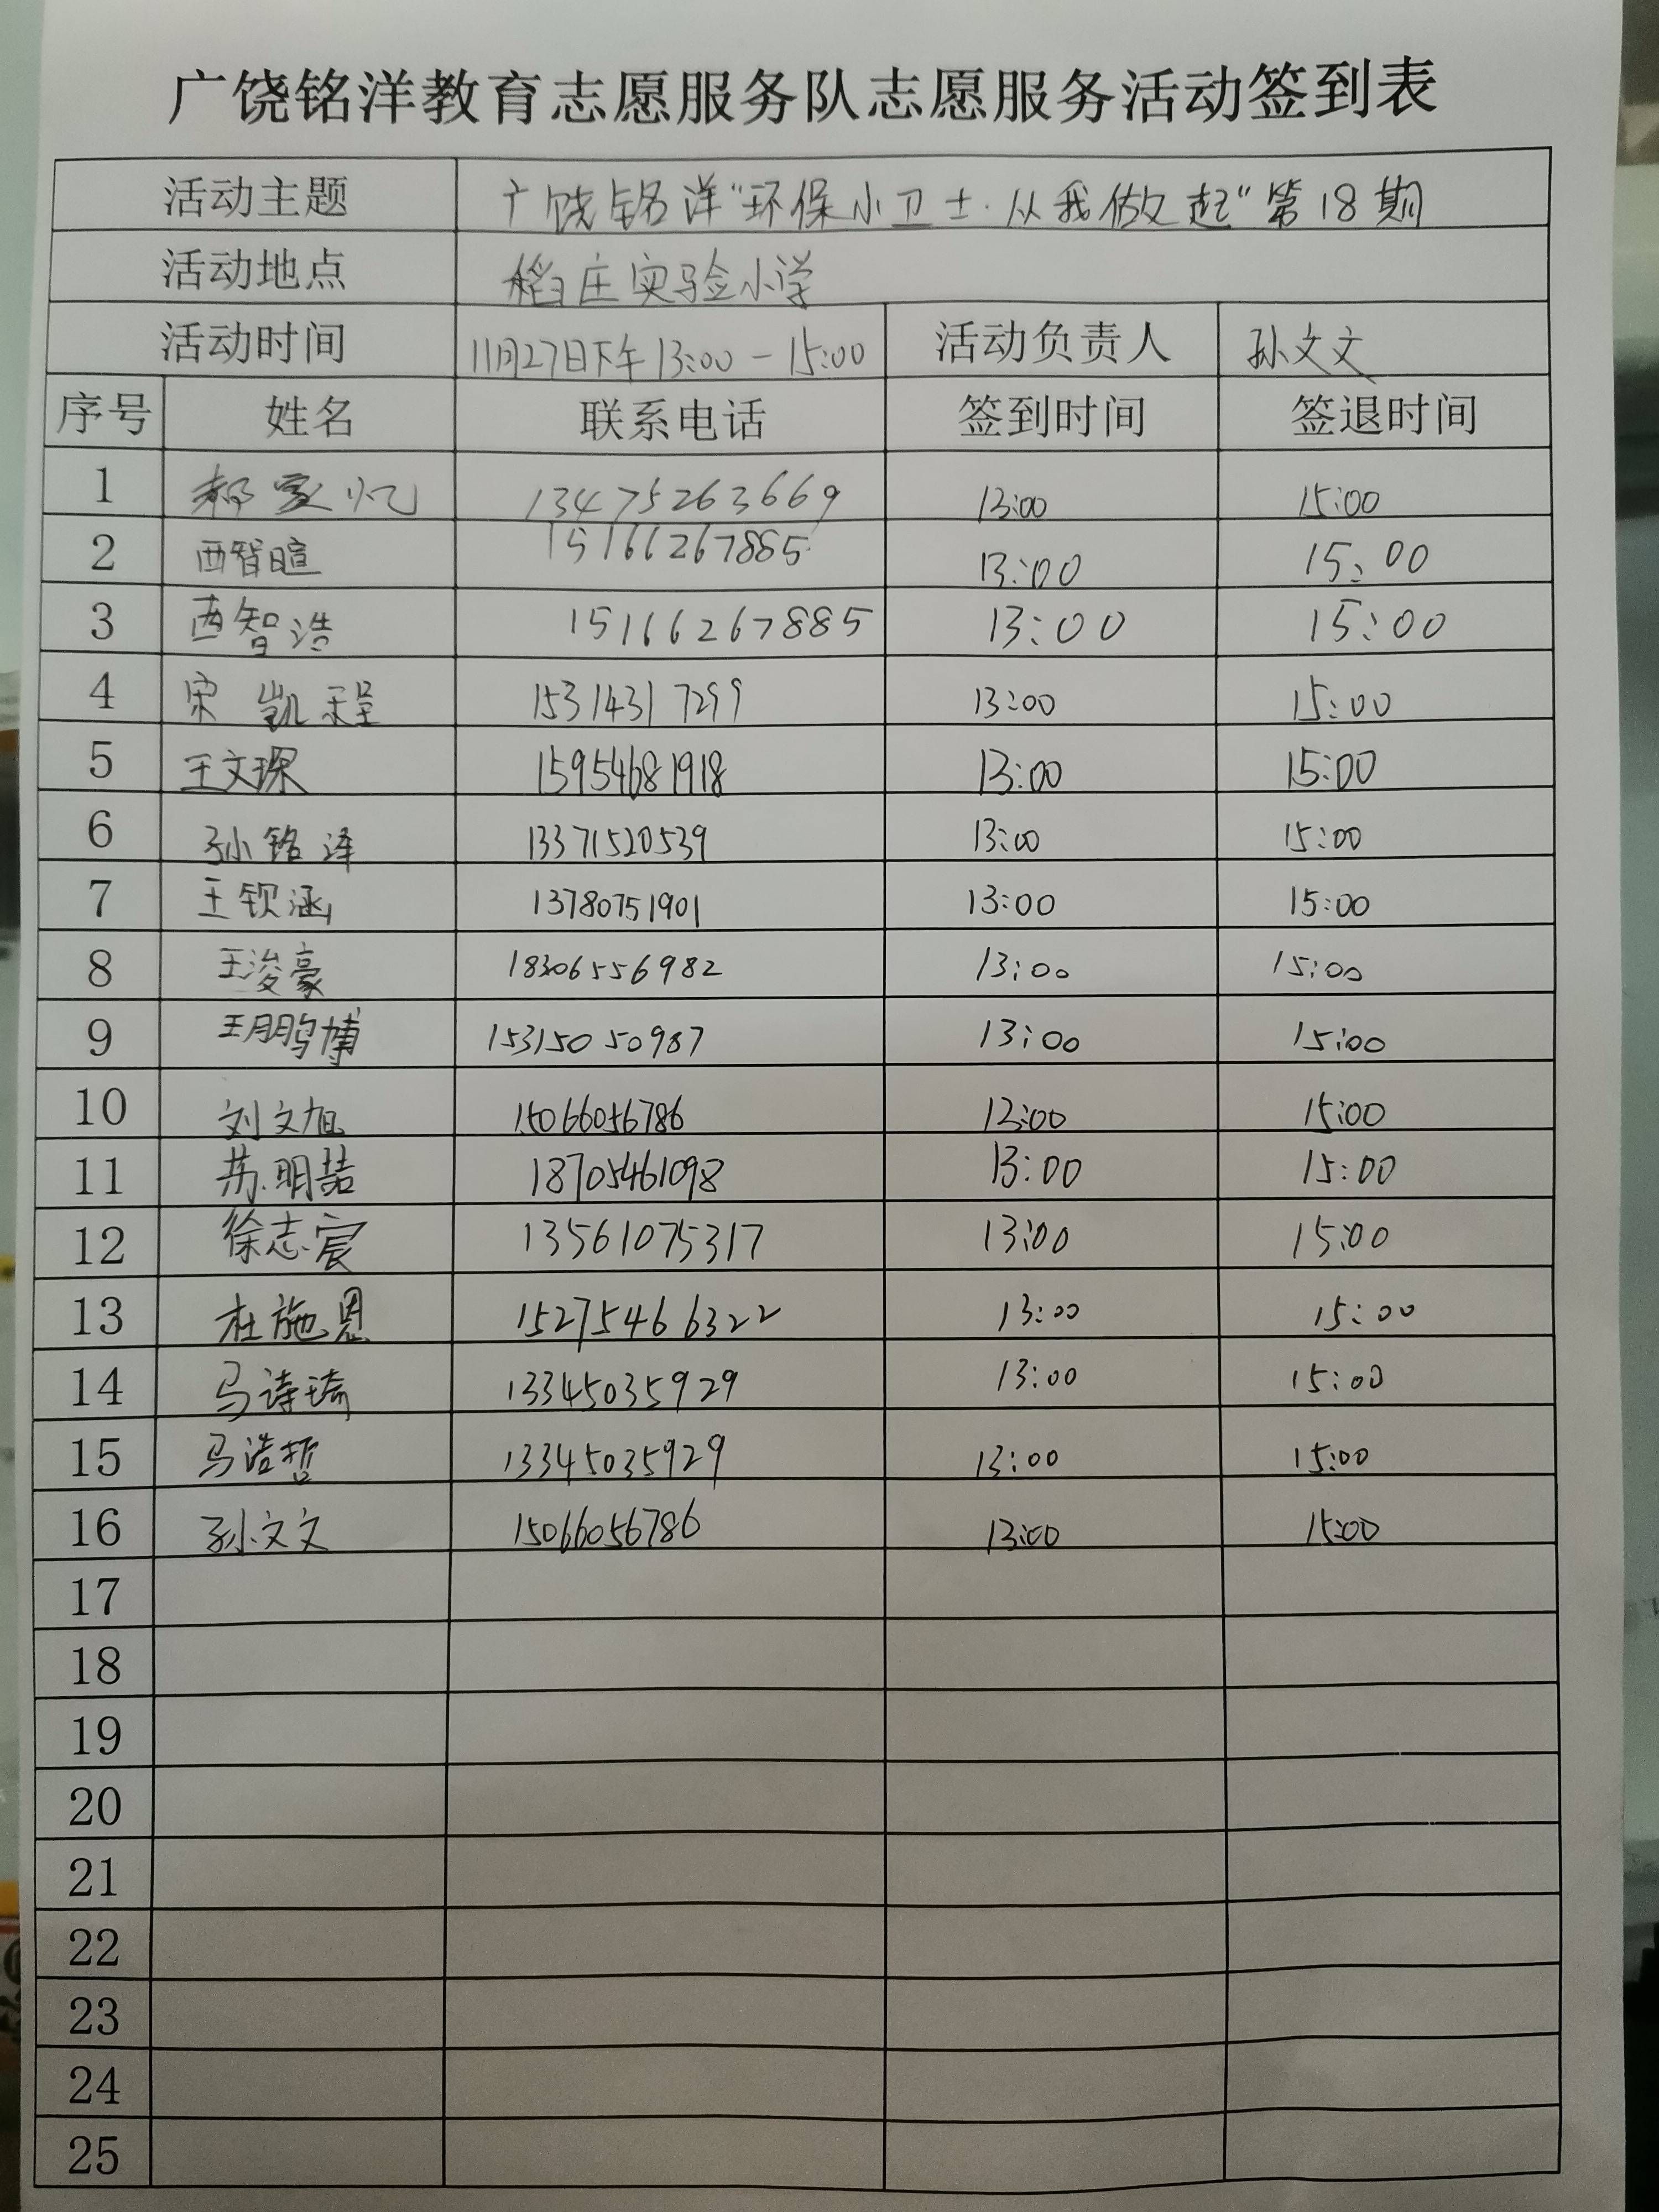 广饶铭洋教育志愿服务队志愿服务活动签到表
活动主题 广饶铭洋“环保小卫士·从我做起”第18期
活动地点 稻庄实验小学
活动时间 11月27日下午13:00-15:00 活动负责人 孙文文
序号 姓名 联系电话 签到时间 签退时间
1 郝家忆 13475263669 13:00 15:00
2 西智暄 15166267885 13:00 15:00
3 西智浩 15166267885 13:00 15:00
4 宋凯程 15314317299 13:00 15:00
5 王文琛 15954681918 13:00 15:00
6 孙铭泽 13371520539 13:00 15:00
7 王钦涵 13780751901 13:00 15:00
8 王浚豪 18306556982 13:00 15:00
9 王鹏博 15315050987 13:00 15:00
10 刘文旭 15066056786 13:00 15:00
11 苏明喆 18705461098 13:00 15:00
12 徐志宸 13561075317 13:00 15:00
13 杜施恩 15275466322 13:00 15:00
14 马诗琦 13345035929 13:00 15:00
15 马浩哲 13345035929 13:00 15:00
16 孙文文 15066056786 13:00 15:00
17
18
19
20
21
22
23
24
25